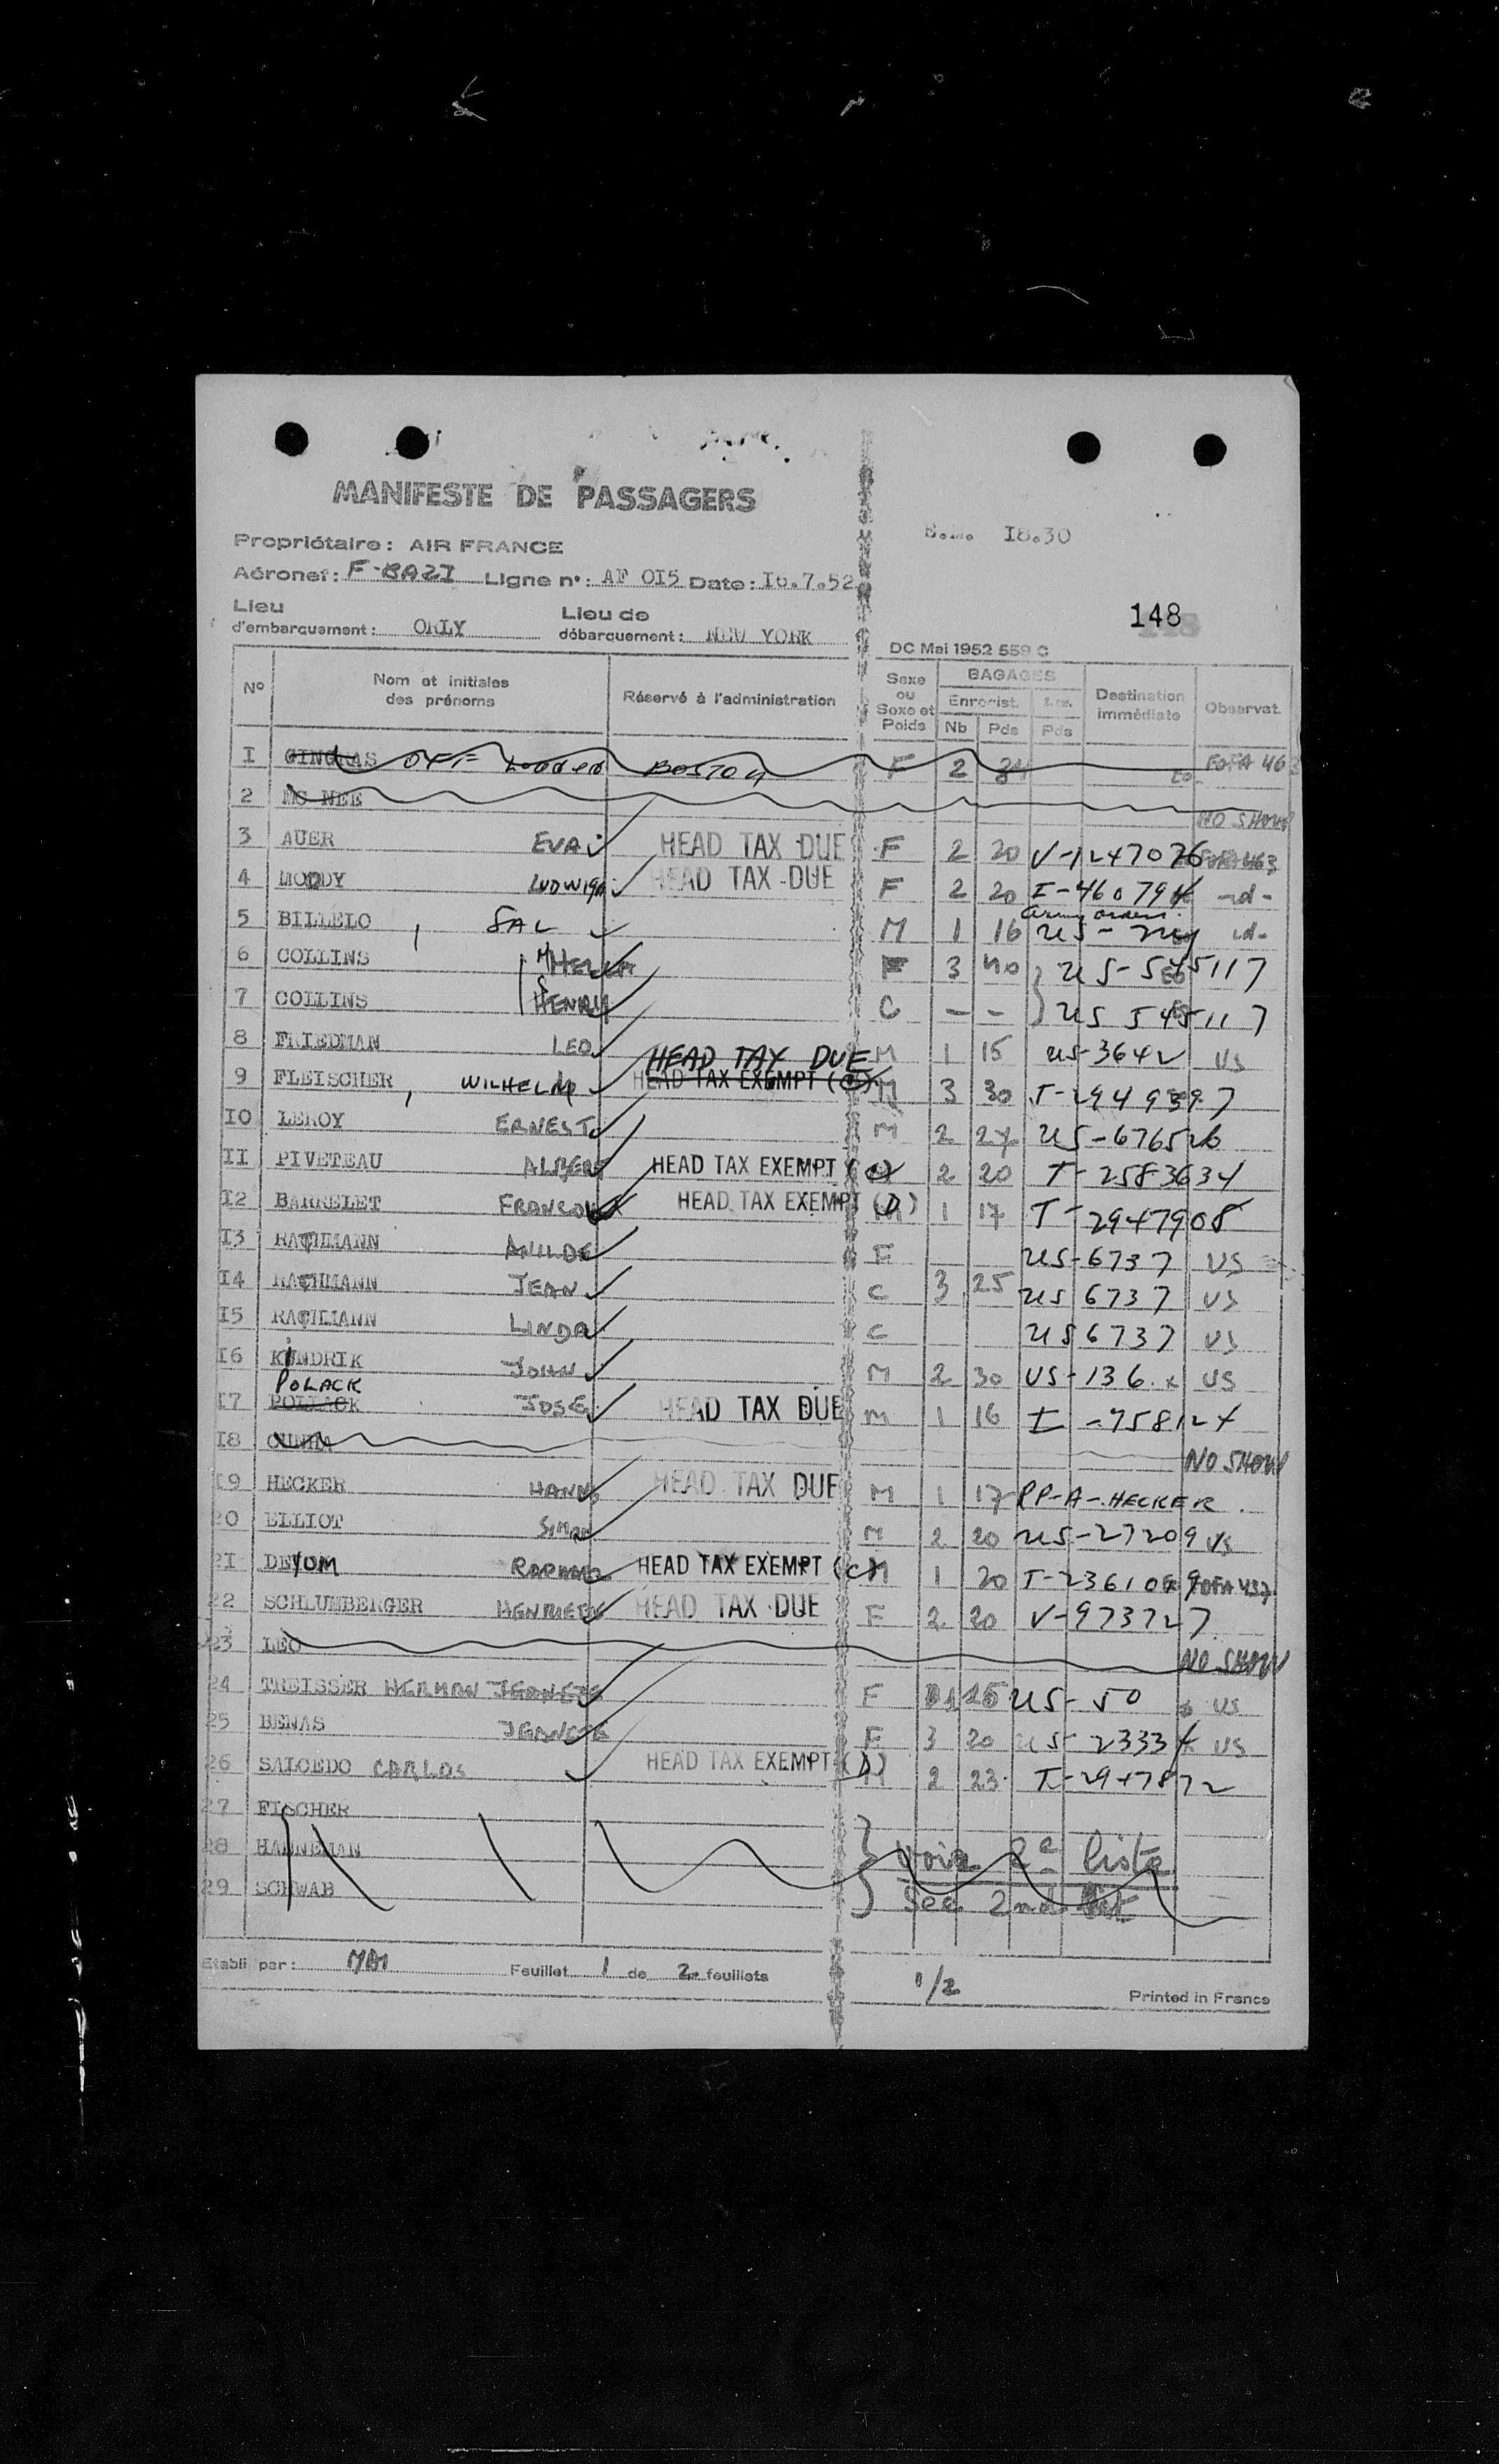 MANIFESTE DE PASSAGERS
Propriétaire: AIR FRANCE
18.30
Aéronef: F-BAZI Ligne n°: AF 015 Date: 16.7.52
148
Lieu d'embarquement: ORLY Lieu de débarquement: NEW YORK
DC Mai 1952 559 C
N° Nom et initiales des prénoms Réservé à l'administration Sexe ou Sexe et Poids BAGAGES Enregist. Nb Pds Pds Destination immédiate Observat.
I GINGRAS OFF Loaded BOSTON F 2
2 MC NEE NO SHOW
3 AUER EVA HEAD TAX DUE F 2 20 V-1247026
4 MOODY LUDWIGA HEAD TAX DUE F 2 20 I-460794 -d-
5 BILLELO, SAL M 1 16 army orders US - id-
6 COLLINS F 3 40 US-545117
7 COLLINS HENRY C - - US 545117
8 FRIEDMAN LEO M 1 15 US-3642 US
9 FLEISCHER, WILHELM HEAD TAX DUE HEAD TAX EXEMPT M 3 30 T-2949397
IO LEROY ERNEST M 2 27 US-676526
II PIVETEAU ALBERT HEAD TAX EXEMPT 2 20 T-2583634
I2 BARRELET FRANCOIS HEAD TAX EXEMPT (D) M 1 17 T-2947908
I3 RATHMANN F US-6737 US
I4 RATHMANN JEAN C 3 25 US 6737 US
I5 RATHMANN LINDA C US 6737 US
I6 KINDRIK JOHN M 2 30 US-136 US
POLACK
I7 POLLACK JOSE HEAD TAX DUE M 1 16 I-758124
I8 CUNHA NO SHOW
I9 HECKER HANNS HEAD TAX DUE M 1 17 PP-A-HECKER
20 ELLIOT SIMON M 2 20 US-27209 US
2I DEYOM HEAD TAX EXEMPT (C) M 1 20 T-2361069
22 SCHLUMBERGER HEAD TAX DUE F 2 20 V-973727
23 LEO NO SHOW
24 TREISSER HERMAN F US-50 US
25 BENAS F 3 20 US-2333 US
26 SALCEDO CARLOS HEAD TAX EXEMPT (D) M 2 23 T-2947872
27 FISCHER
28 HANNEMAN voir 2e liste
29 SCHWAB See 2nd list
Etabli par: Feuillet 1 de 2 feuillets
1/2
Printed in France